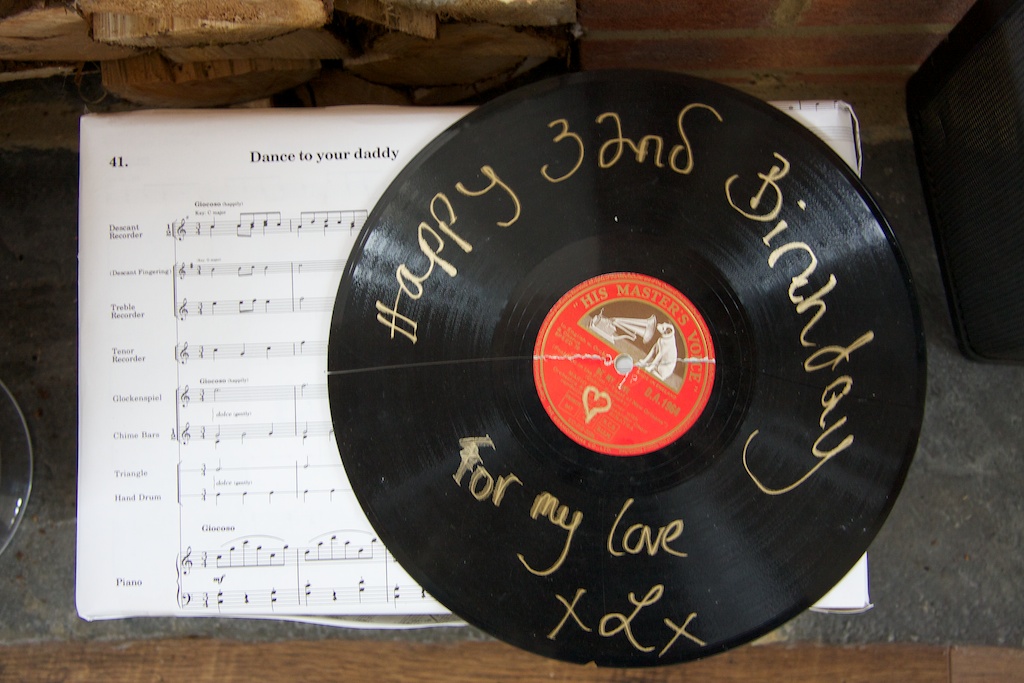 41.
Dance to your daddy
Giocoso (happily)
Key: C major
Descant
Recorder
(Descant Fingering)
Treble
Recorder
Tenor
Recorder
Giocoso (happily)
Glockenspiel
dolce (gently)
Chime Bars
Triangle
dolce (gently)
Hand Drum
Giocoso
Piano
mf
Happy 32nd Birthday
"HIS MASTER'S VOICE
For my love
x L x